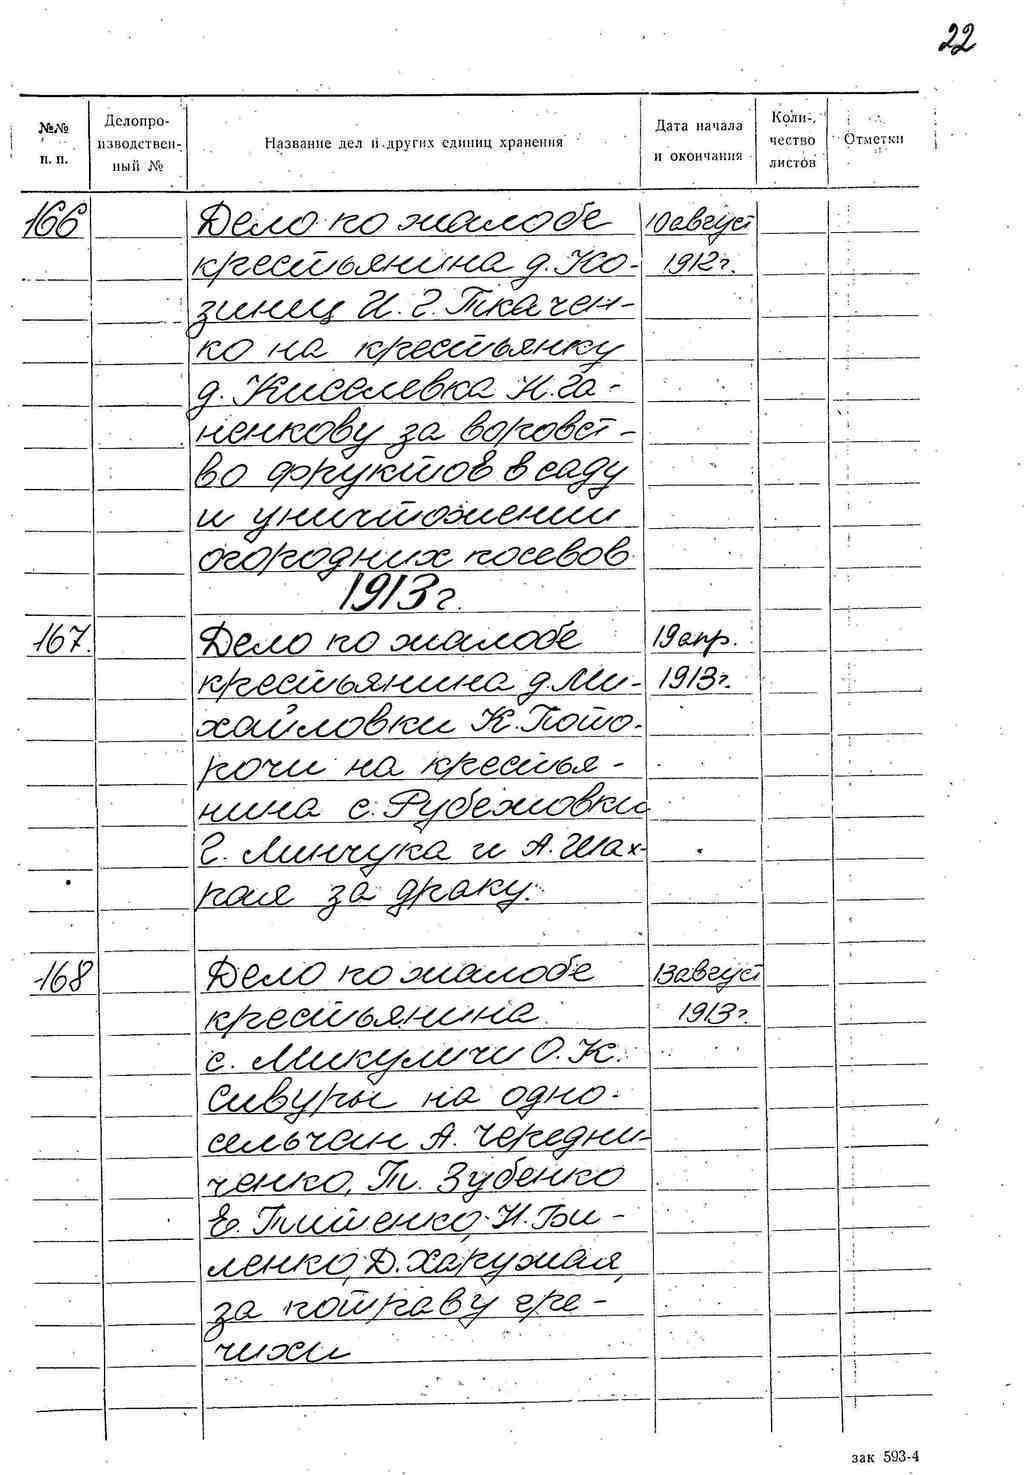 22
№№ п. п. Делопро-изводствен-ный № Название дел и других единиц хранения Дата начала и окончания Коли-чество листов Отметки
166 Дело по жалобе 10 август
крестьянина д. Ко- 1912 г.
зинец И. Г. Ткачен-
ко на крестьянку
д. Киселевка Н. Га-
ненкову за воровст-
во фруктов в саду
и уничтожении
огородних посевов
1913 г.
167. Дело по жалобе 19 апр.
крестьянина д. Ми- 1913 г.
хайловки К. Пото-
рочи на крестья-
нина с. Рубежовки
Г. Линчука и А. Шах-
рая за драку.
168 Дело по жалобе 13 август
крестьянина 1913 г.
с. Микуличи О. К.
Сивуры на одно-
сельчан А. Чередни-
ченко, Т. Зубенко
Е. Тищенко, Н. Би-
ленко, Д. Харужая,
за потраву гре-
чихи
зак 593-4